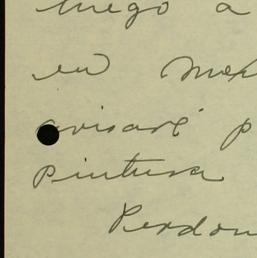 luego a
en Mex
avisaré p
pintura
Perdon